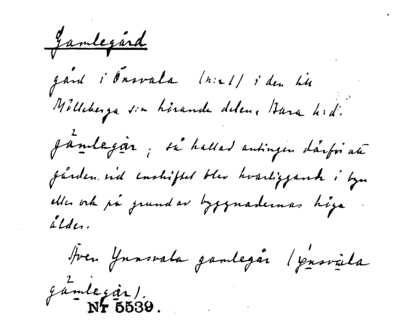 Gamlegård
gård i Önsvala (n:r 1) i den till
Mölleberga s:n hörande delen, Bara h:d.
gamlegår, så kallad antingen därför att
gården vid enskiftet blev kvarliggande i byn
eller och på grund av byggnadernas höga
ålder.
Även Ynnsvala gamlegår (ynsvala
gamlegår).
Nr 5539.